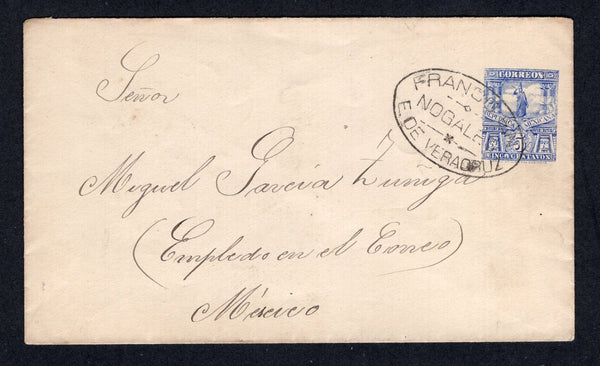 Señor
Miguel Garcia Zuniga
(Empledo en el Correo)
México
FRANCO
NOGALES
E. DE VERACRUZ
CORREOS
5
CINCO CENTAVOS